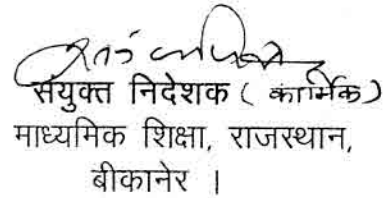 संयुक्त निदेशक (कार्मिक)
माध्यमिक शिक्षा, राजस्थान,
बीकानेर ।